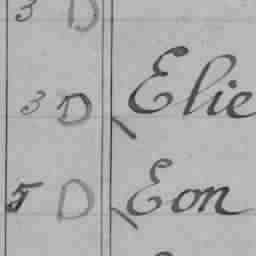 3 D
3 D Elie
5 D Eon